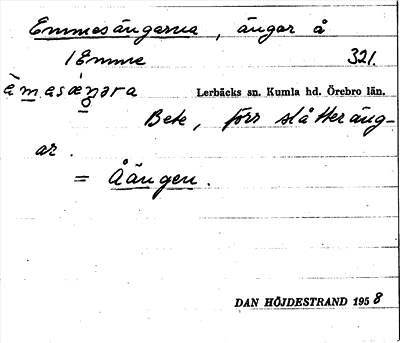 Emmesängarna, ängar å
1 Emme 321.
Lerbäcks sn. Kumla hd. Örebro län.
Bete, förr slåtteräng-
ar.
= Åängen.
DAN HÖJDESTRAND 1958